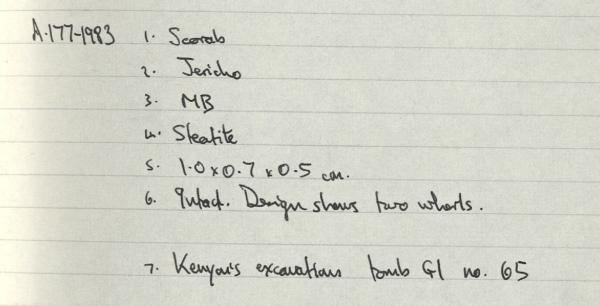 A.177-1983 1. Scarab
2. Jericho
3. MB
4. Steatite
5. 1.0 x 0.7 x 0.5 cm.
6. Intact. Design shows two whorls.
7. Kenyon's excavations tomb G1 no. 65